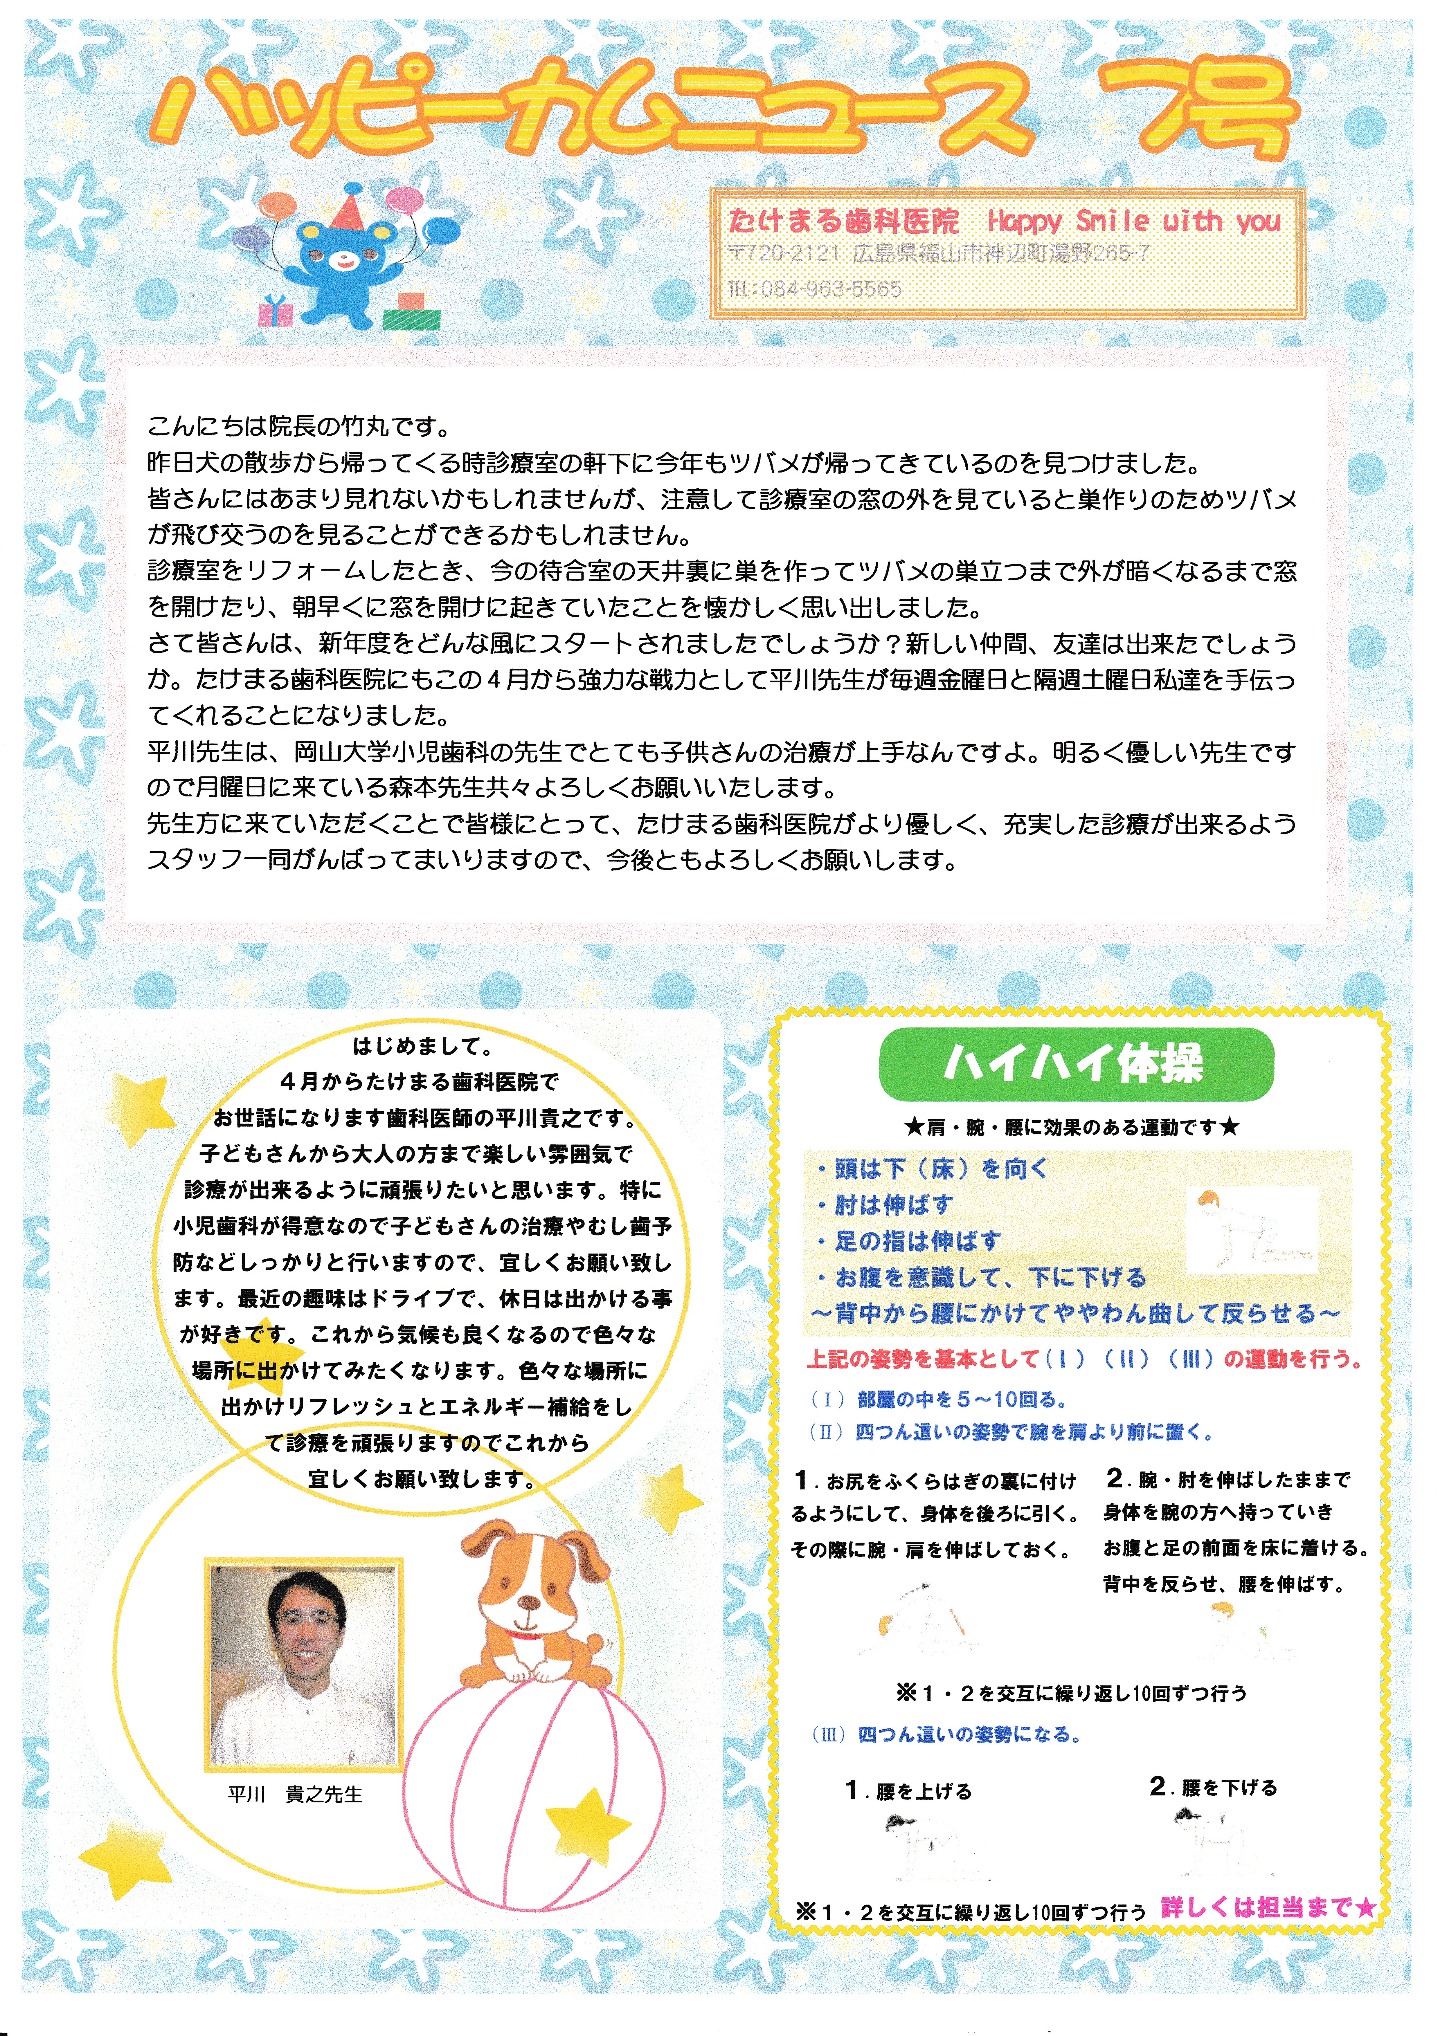 ハッピーカムニュース　7号
たけまる歯科医院　Happy Smile with you
〒720-2121 広島県福山市神辺町湯野265-7
TEL:084-963-5565
こんにちは院長の竹丸です。
昨日犬の散歩から帰ってくる時診療室の軒下に今年もツバメが帰ってきているのを見つけました。
皆さんにはあまり見れないかもしれませんが、注意して診療室の窓の外を見ていると巣作りのためツバメ
が飛び交うのを見ることができるかもしれません。
診療室をリフォームしたとき、今の待合室の天井裏に巣を作ってツバメの巣立つまで外が暗くなるまで窓
を開けたり、朝早くに窓を開けに起きていたことを懐かしく思い出しました。
さて皆さんは、新年度をどんな風にスタートされましたでしょうか？新しい仲間、友達は出来たでしょう
か。たけまる歯科医院にもこの４月から強力な戦力として平川先生が毎週金曜日と隔週土曜日私達を手伝っ
てくれることになりました。
平川先生は、岡山大学小児歯科の先生でとても子供さんの治療が上手なんですよ。明るく優しい先生です
ので月曜日に来ている森本先生共々よろしくお願いいたします。
先生方に来ていただくことで皆様にとって、たけまる歯科医院がより優しく、充実した診療が出来るよう
スタッフ一同がんばってまいりますので、今後ともよろしくお願いします。
はじめまして。
４月からたけまる歯科医院で
お世話になります歯科医師の平川貴之です。
子どもさんから大人の方まで楽しい雰囲気で
診療が出来るように頑張りたいと思います。特に
小児歯科が得意なので子どもさんの治療やむし歯予
防などしっかりと行いますので、宜しくお願い致し
ます。最近の趣味はドライブで、休日は出かける事
が好きです。これから気候も良くなるので色々な
場所に出かけてみたくなります。色々な場所に
出かけリフレッシュとエネルギー補給をし
て診療を頑張りますのでこれから
宜しくお願い致します。
平川　貴之先生
ハイハイ体操
★肩・腕・腰に効果のある運動です★
・頭は下（床）を向く
・肘は伸ばす
・足の指は伸ばす
・お腹を意識して、下に下げる
～背中から腰にかけてややわん曲して反らせる～
上記の姿勢を基本として（Ⅰ）（Ⅱ）（Ⅲ）の運動を行う。
（Ⅰ）部屋の中を５～10回る。
（Ⅱ）四つん這いの姿勢で腕を肩より前に置く。
１．お尻をふくらはぎの裏に付け
るようにして、身体を後ろに引く。
その際に腕・肩を伸ばしておく。
２．腕・肘を伸ばしたままで
身体を腕の方へ持っていき
お腹と足の前面を床に着ける。
背中を反らせ、腰を伸ばす。
※１・２を交互に繰り返し10回ずつ行う
（Ⅲ）四つん這いの姿勢になる。
１．腰を上げる
２．腰を下げる
※１・２を交互に繰り返し10回ずつ行う
詳しくは担当まで★